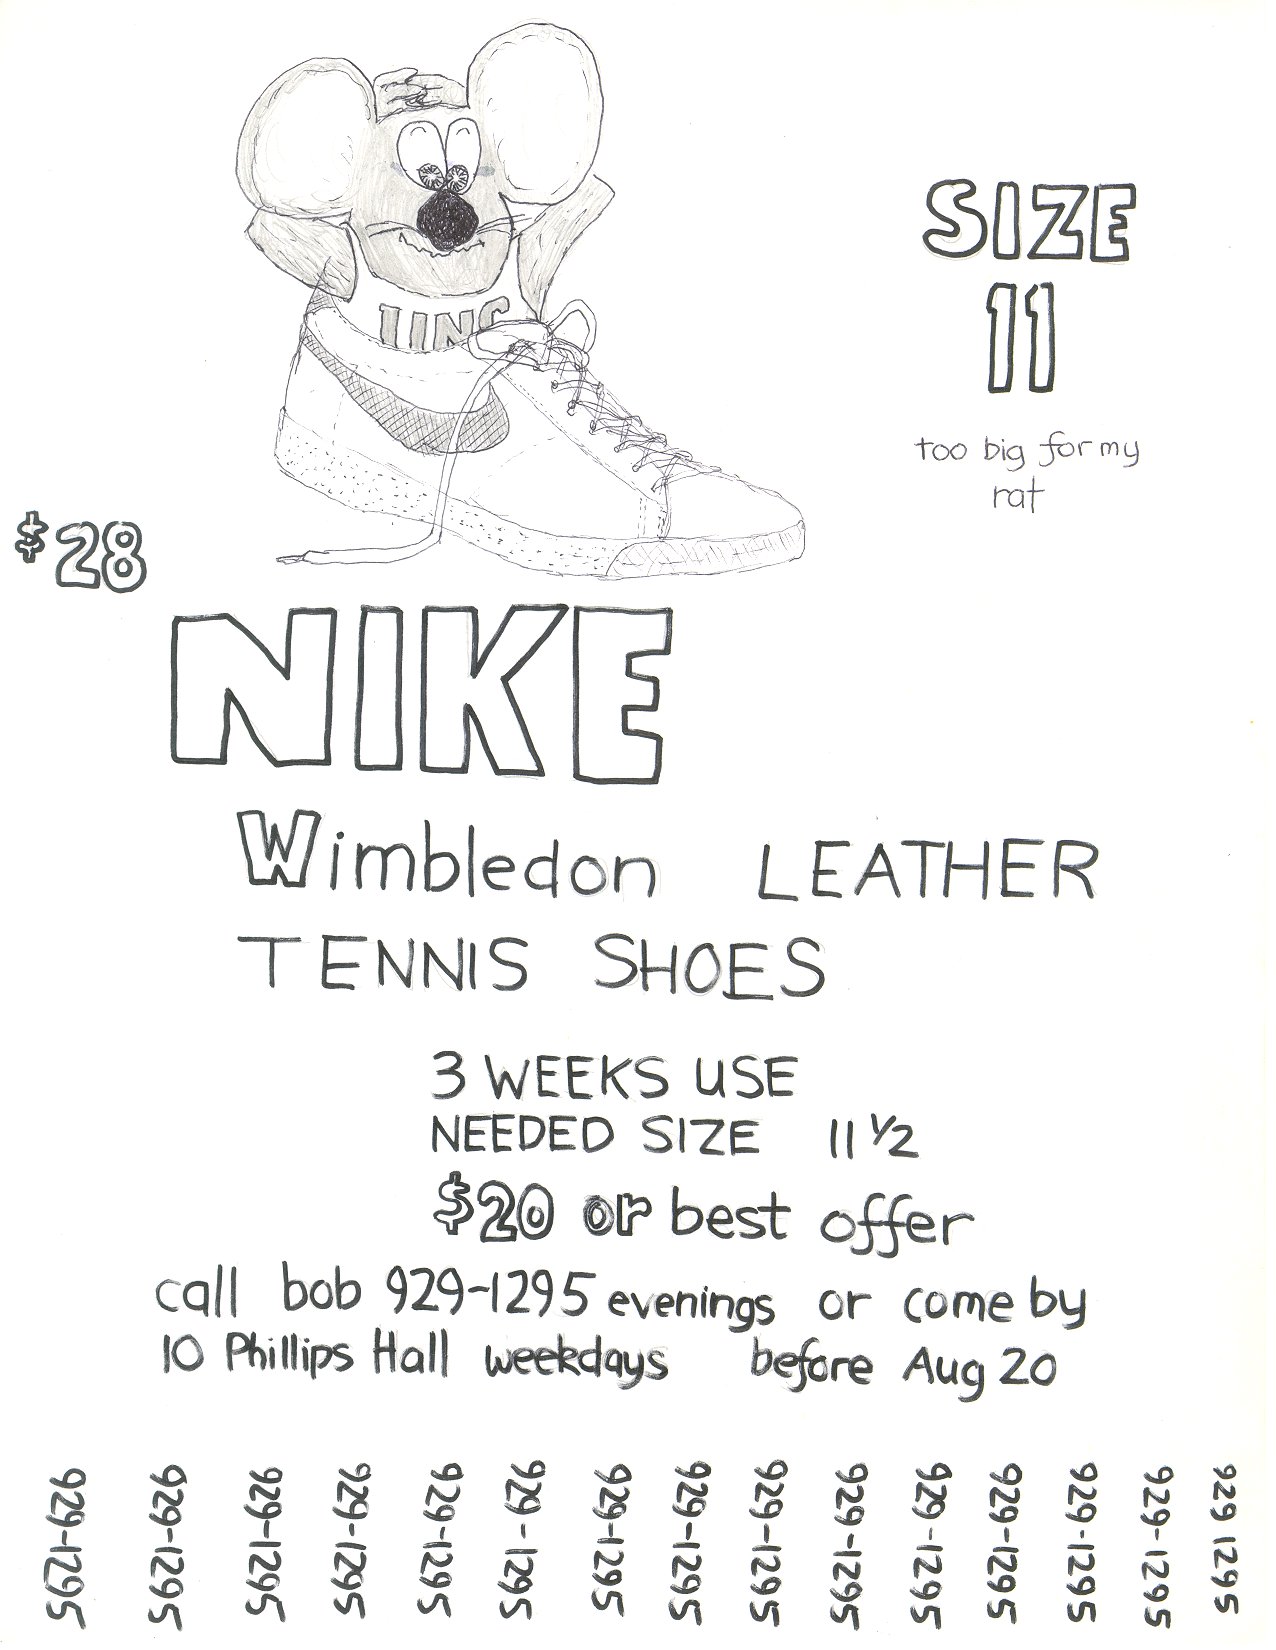 UNC
SIZE
11
too big for my
rat
$28
NIKE
Wimbledon LEATHER
TENNIS SHOES
3 WEEKS USE
NEEDED SIZE 11 1/2
$20 or best offer
call bob 929-1295 evenings or come by
10 Phillips Hall weekdays before Aug 20
929-1295
929-1295
929-1295
929-1295
929-1295
929-1295
929-1295
929-1295
929-1295
929-1295
929-1295
929-1295
929-1295
929-1295
929 1295